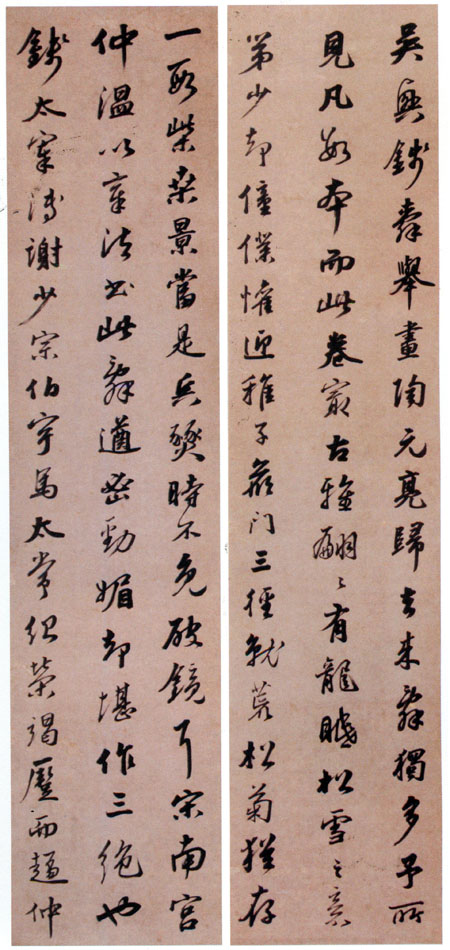 吳興錢舜舉畫陶元亮歸去来辭獨多予所
見凡數本而此卷冣古雅翩〻有龍眠松雪之意
第少却僮僕懽迎稚子候门三徑就荒松菊猶存
一段柴桑景當是兵燹時不免破鏡耳宋南宮
仲溫以章法书此辭遒密勁媚却堪作三絶也
錢太宰溥謝少宗伯宇馬太常紹榮竭蹷而趨仲